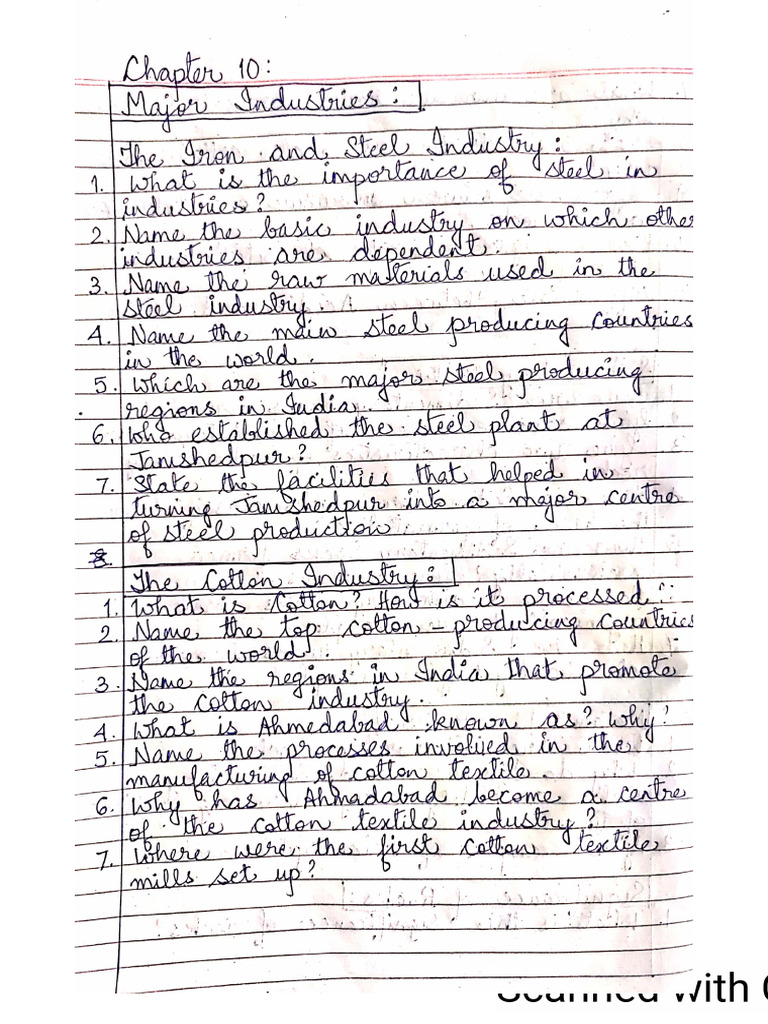 Chapter 10:
Major Industries:
The Iron and Steel Industry:
1. What is the importance of steel in
industries?
2. Name the basic industry on which other
industries are dependent.
3. Name the raw materials used in the
steel industry.
4. Name the main steel producing countries
in the world.
5. Which are the major steel producing
regions in India.
6. Who established the steel plant at
Jamshedpur?
7. State the facilities that helped in
turning Jamshedpur into a major centre
of steel production.
8.
The Cotton Industry:
1. What is Cotton? How is it processed?
2. Name the top cotton-producing countries
of the world.
3. Name the regions in India that promote
the cotton industry.
4. What is Ahmedabad known as? Why?
5. Name the processes involved in the
manufacturing of cotton textile.
6. Why has Ahmadabad become a centre
of the cotton textile industry?
7. Where were the first cotton textile
mills set up?
Scanned with